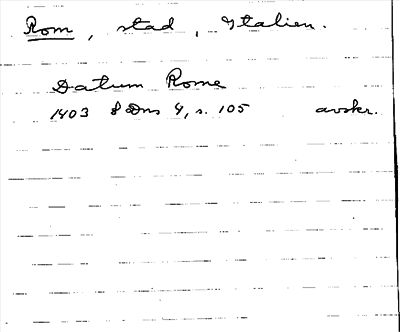 Rom, stad, Italien.
Datum Rome
1403 8 Dns 4, s. 105 avskr.